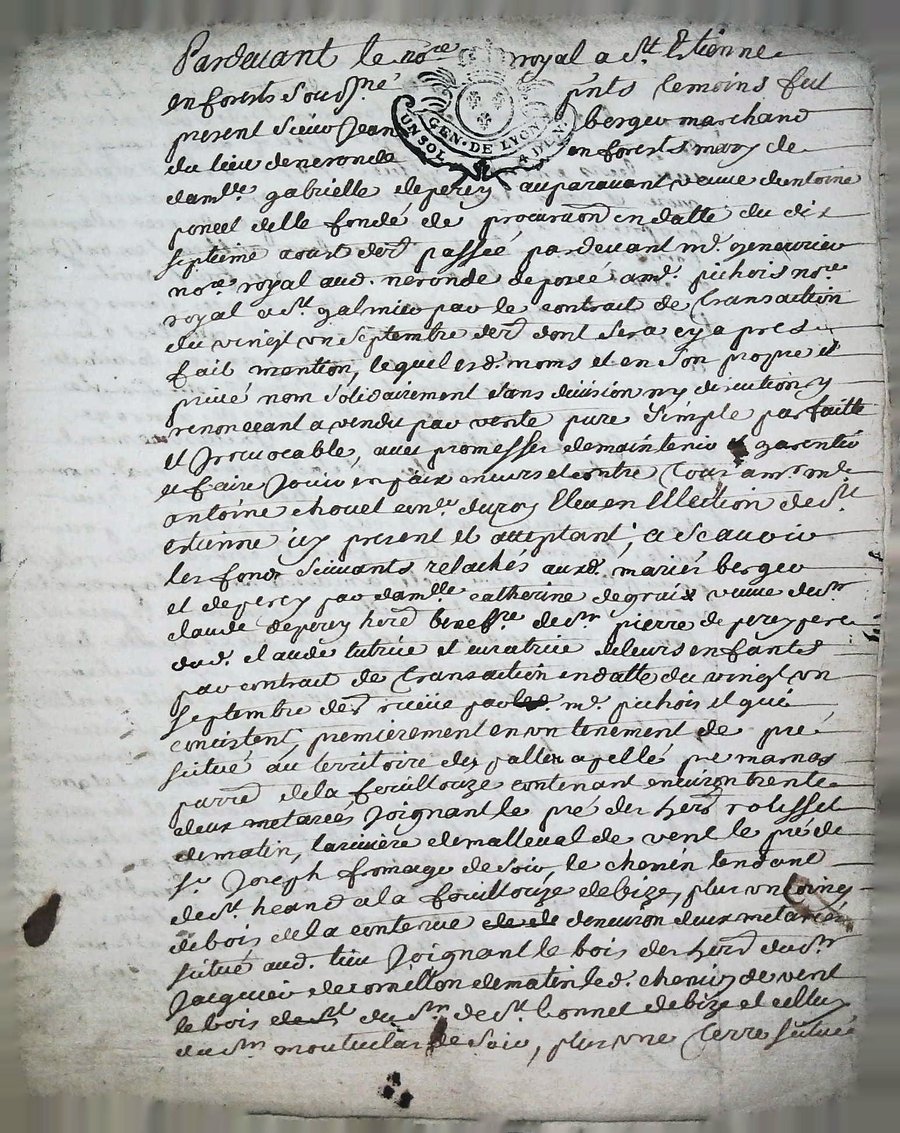 Pardevant le nore royal a St Etienne
en forests soussné pnts temoins fut
present sieur Jean berger marchand
GEN · DE LYON
UN SOL
du lieu de neronde en forests mary de
damlle gabrielle deperey auparavant veuve dantoine
poncet delle fondé de procuration en datte du dix
septieme aoust der passée pardevant me genevrier
nore royal aud. neronde deposé a me. pichois nore
royal a St galmier par le contrait de transaction
du vingt un septembre der dont sera cy apres
fait mention, lequel esd. noms et en son propre et
privé nom solidairement sans division ny discution y
renonceant a vendu par vente pure simple parfaitte
et irrevocable, avec promesse de maintenir et garentir
et faire jouir en paix envers et contre tous a mr me
antoine chovet coner du roy Eleu en l'Election de St
estienne icy present et acceptant, a scavoir
les fonds suivants relachés auxd. mariés berger
et deperey par damlle catherine degraix veuve de sr
claude deperey herd de sr pierre de perey pere
dud. claude tutrice et curatrice de leurs enfants
par contrait de transaction en datte du vingt un
septembre der reçue par led. me. pichois et qui
concistent, premierement en un tenement de pré
situé au territoire des palles apellé pre marnas
parre de la fouillouze contenant environ trente
deux metarées joignant le pré des herd rolisset
de matin, la riviere de malleval de vent le pré de
sr Joseph fromage de soir, le chemin tendant
de St heand a la fouillouze de bize, plus un coing
de bois de la contenue de de denviron deux metarées
situé aud. lieu joignant le bois des herd du sr
Jacquier de cornillon de matin led. chemin de vent
le bois de St du sr de St bonnet de bize et celluy
du sr montuclas de soir, plus une terre située